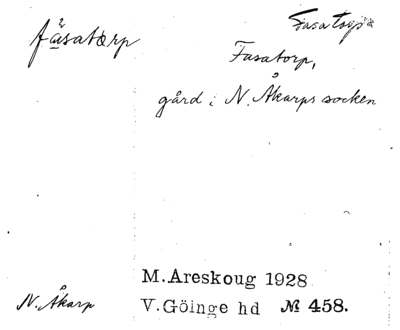 Fasatorp
fåsatorp
Fasatorp,
gård i N. Åkarps socken
M. Areskoug 1928
N. Åkarp
V. Göinge hd № 458.